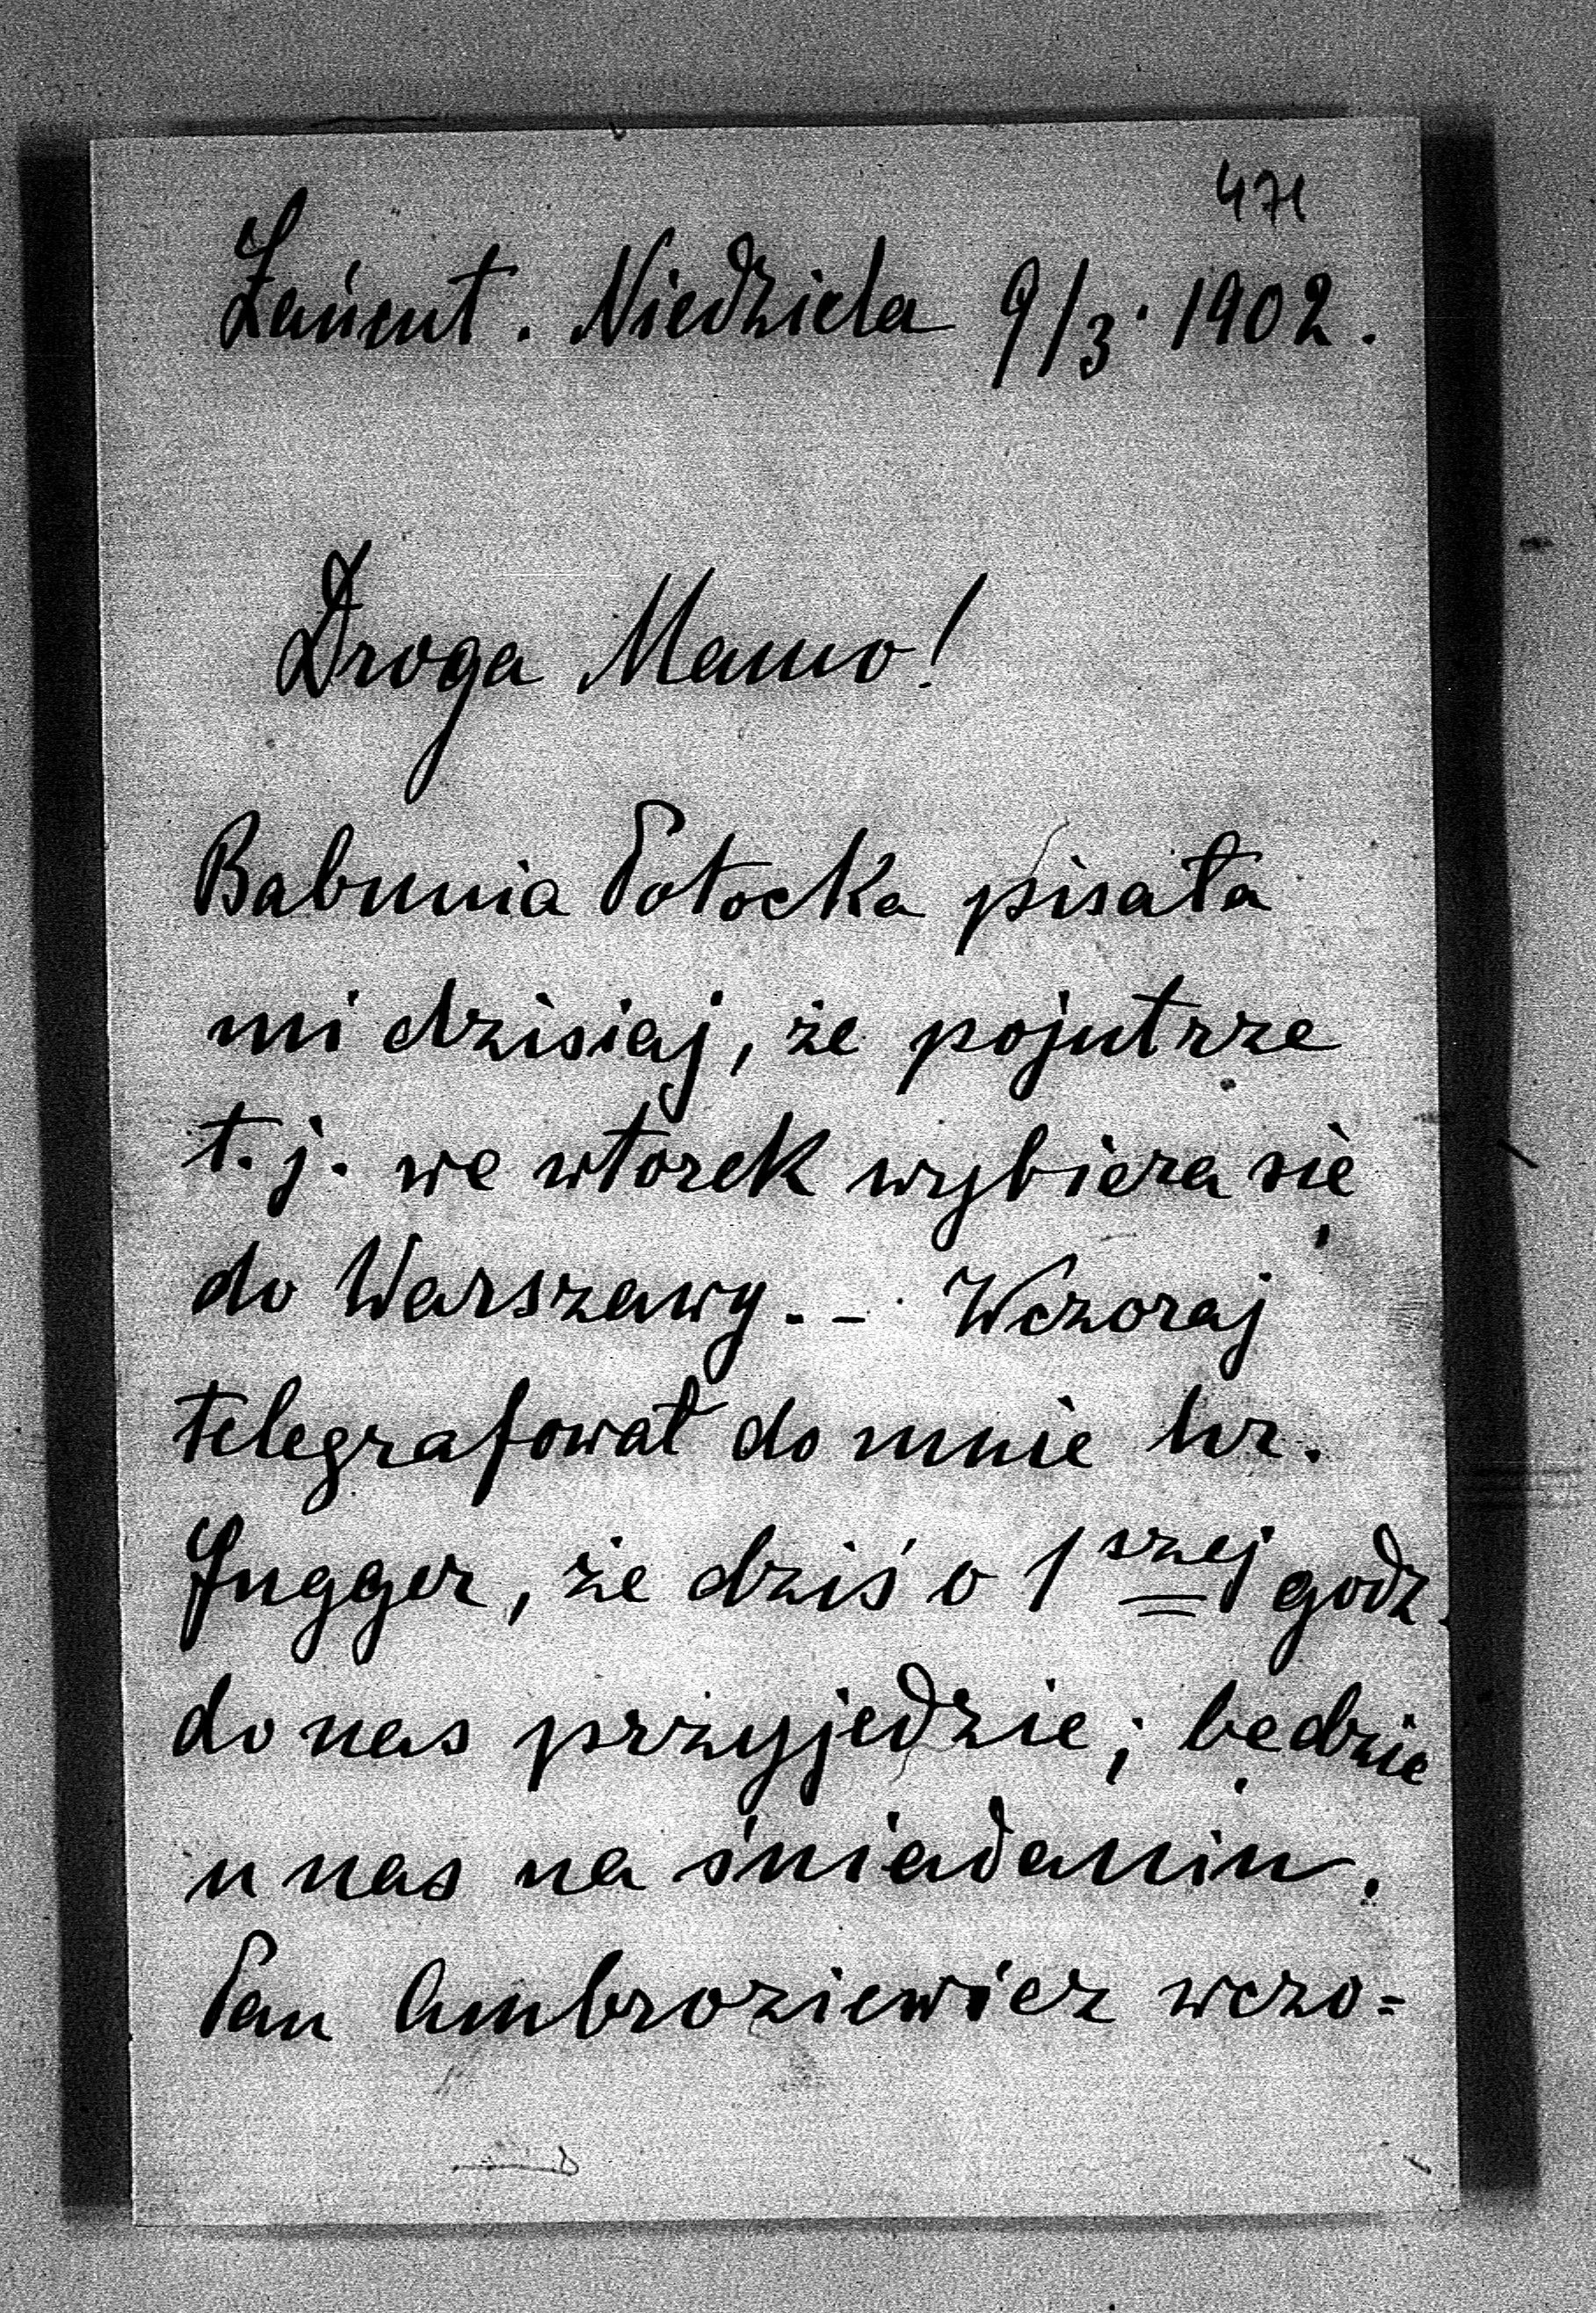 471
Łańcut. Niedziela 9/3. 1902.
Droga Mamo!
Babunia Potocka pisała
mi dzisiaj, że pojutrze
t.j. we wtorek wybiera się
do Warszawy. – Wczoraj
telegrafował do mnie hr.
Fugger, że dziś o 1szej godz.
do nas przyjedzie; będzie
u nas na śniadaniu.
Pan Ambroziewicz wczo=